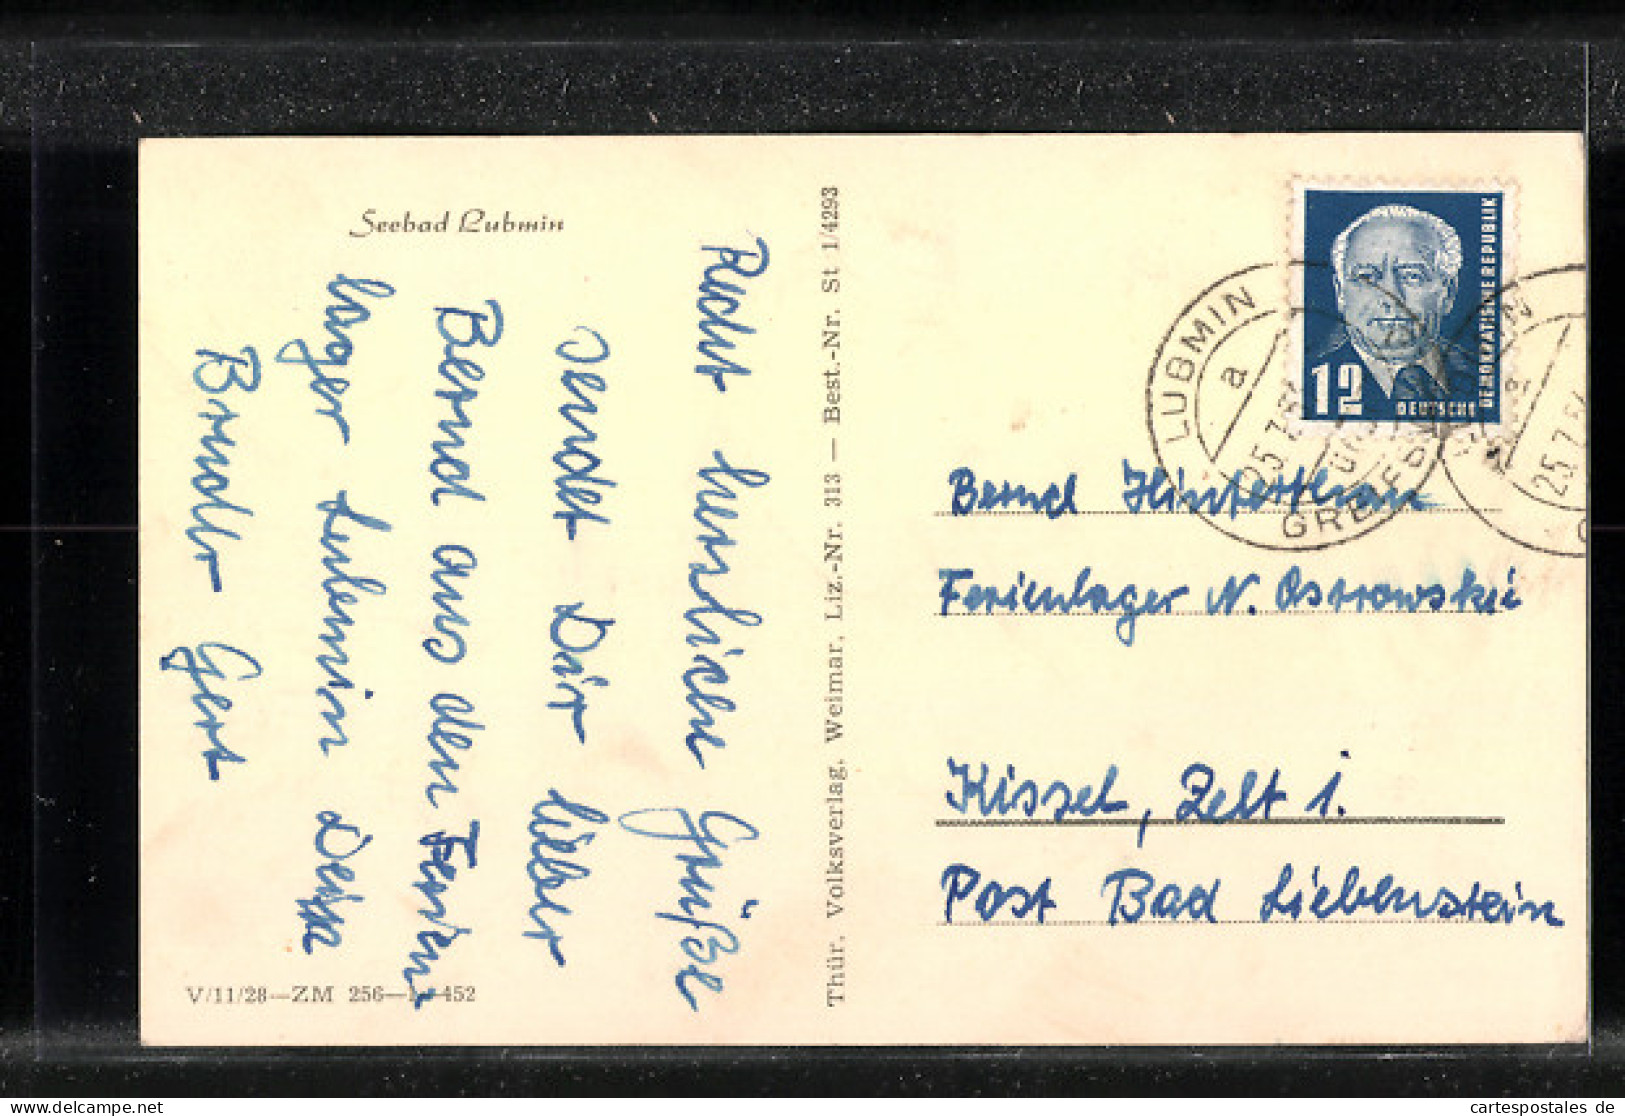 Seebad Lubmin
Recht herzliche Grüße
sendet Dir lieber
Bernd aus den Ferien-
lager Lubmin Dein
Bruder Gert
V/11/28—ZM 256— 452
Thür. Volksverlag, Weimar, Liz.-Nr. 313 — Best.-Nr. St 1/4293
DEUTSCHE
DEMOKRATISCHE REPUBLIK
12
LUBMIN
a
25.7.5
25.7.54
Bernd
Ferienlager N. Ostrowski
Kissel, Zelt 1.
Post Bad Liebenstein
cartespostales de